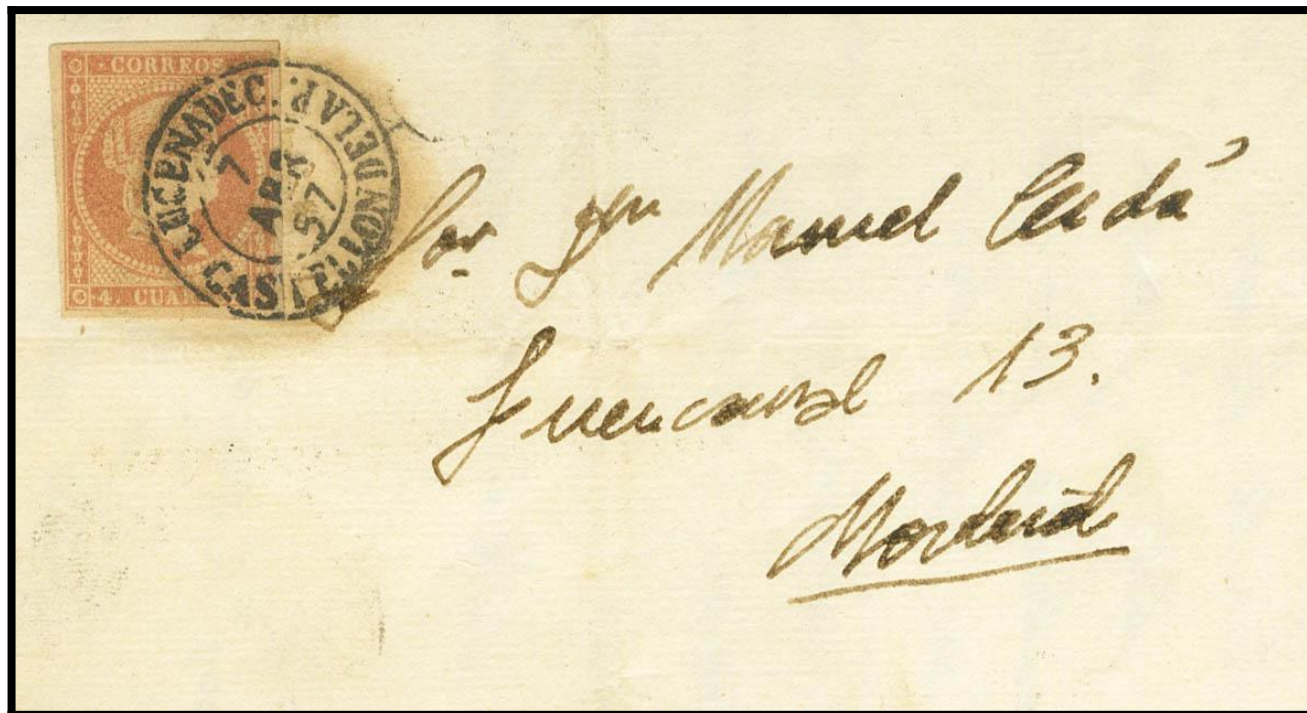 CORREOS
4. CUAR
LUCENA DEC.
CASTELLON DE LA P.
7
ABR
57
Sor Dn Manuel Cerdá
Fuencarral 13.
Madrid